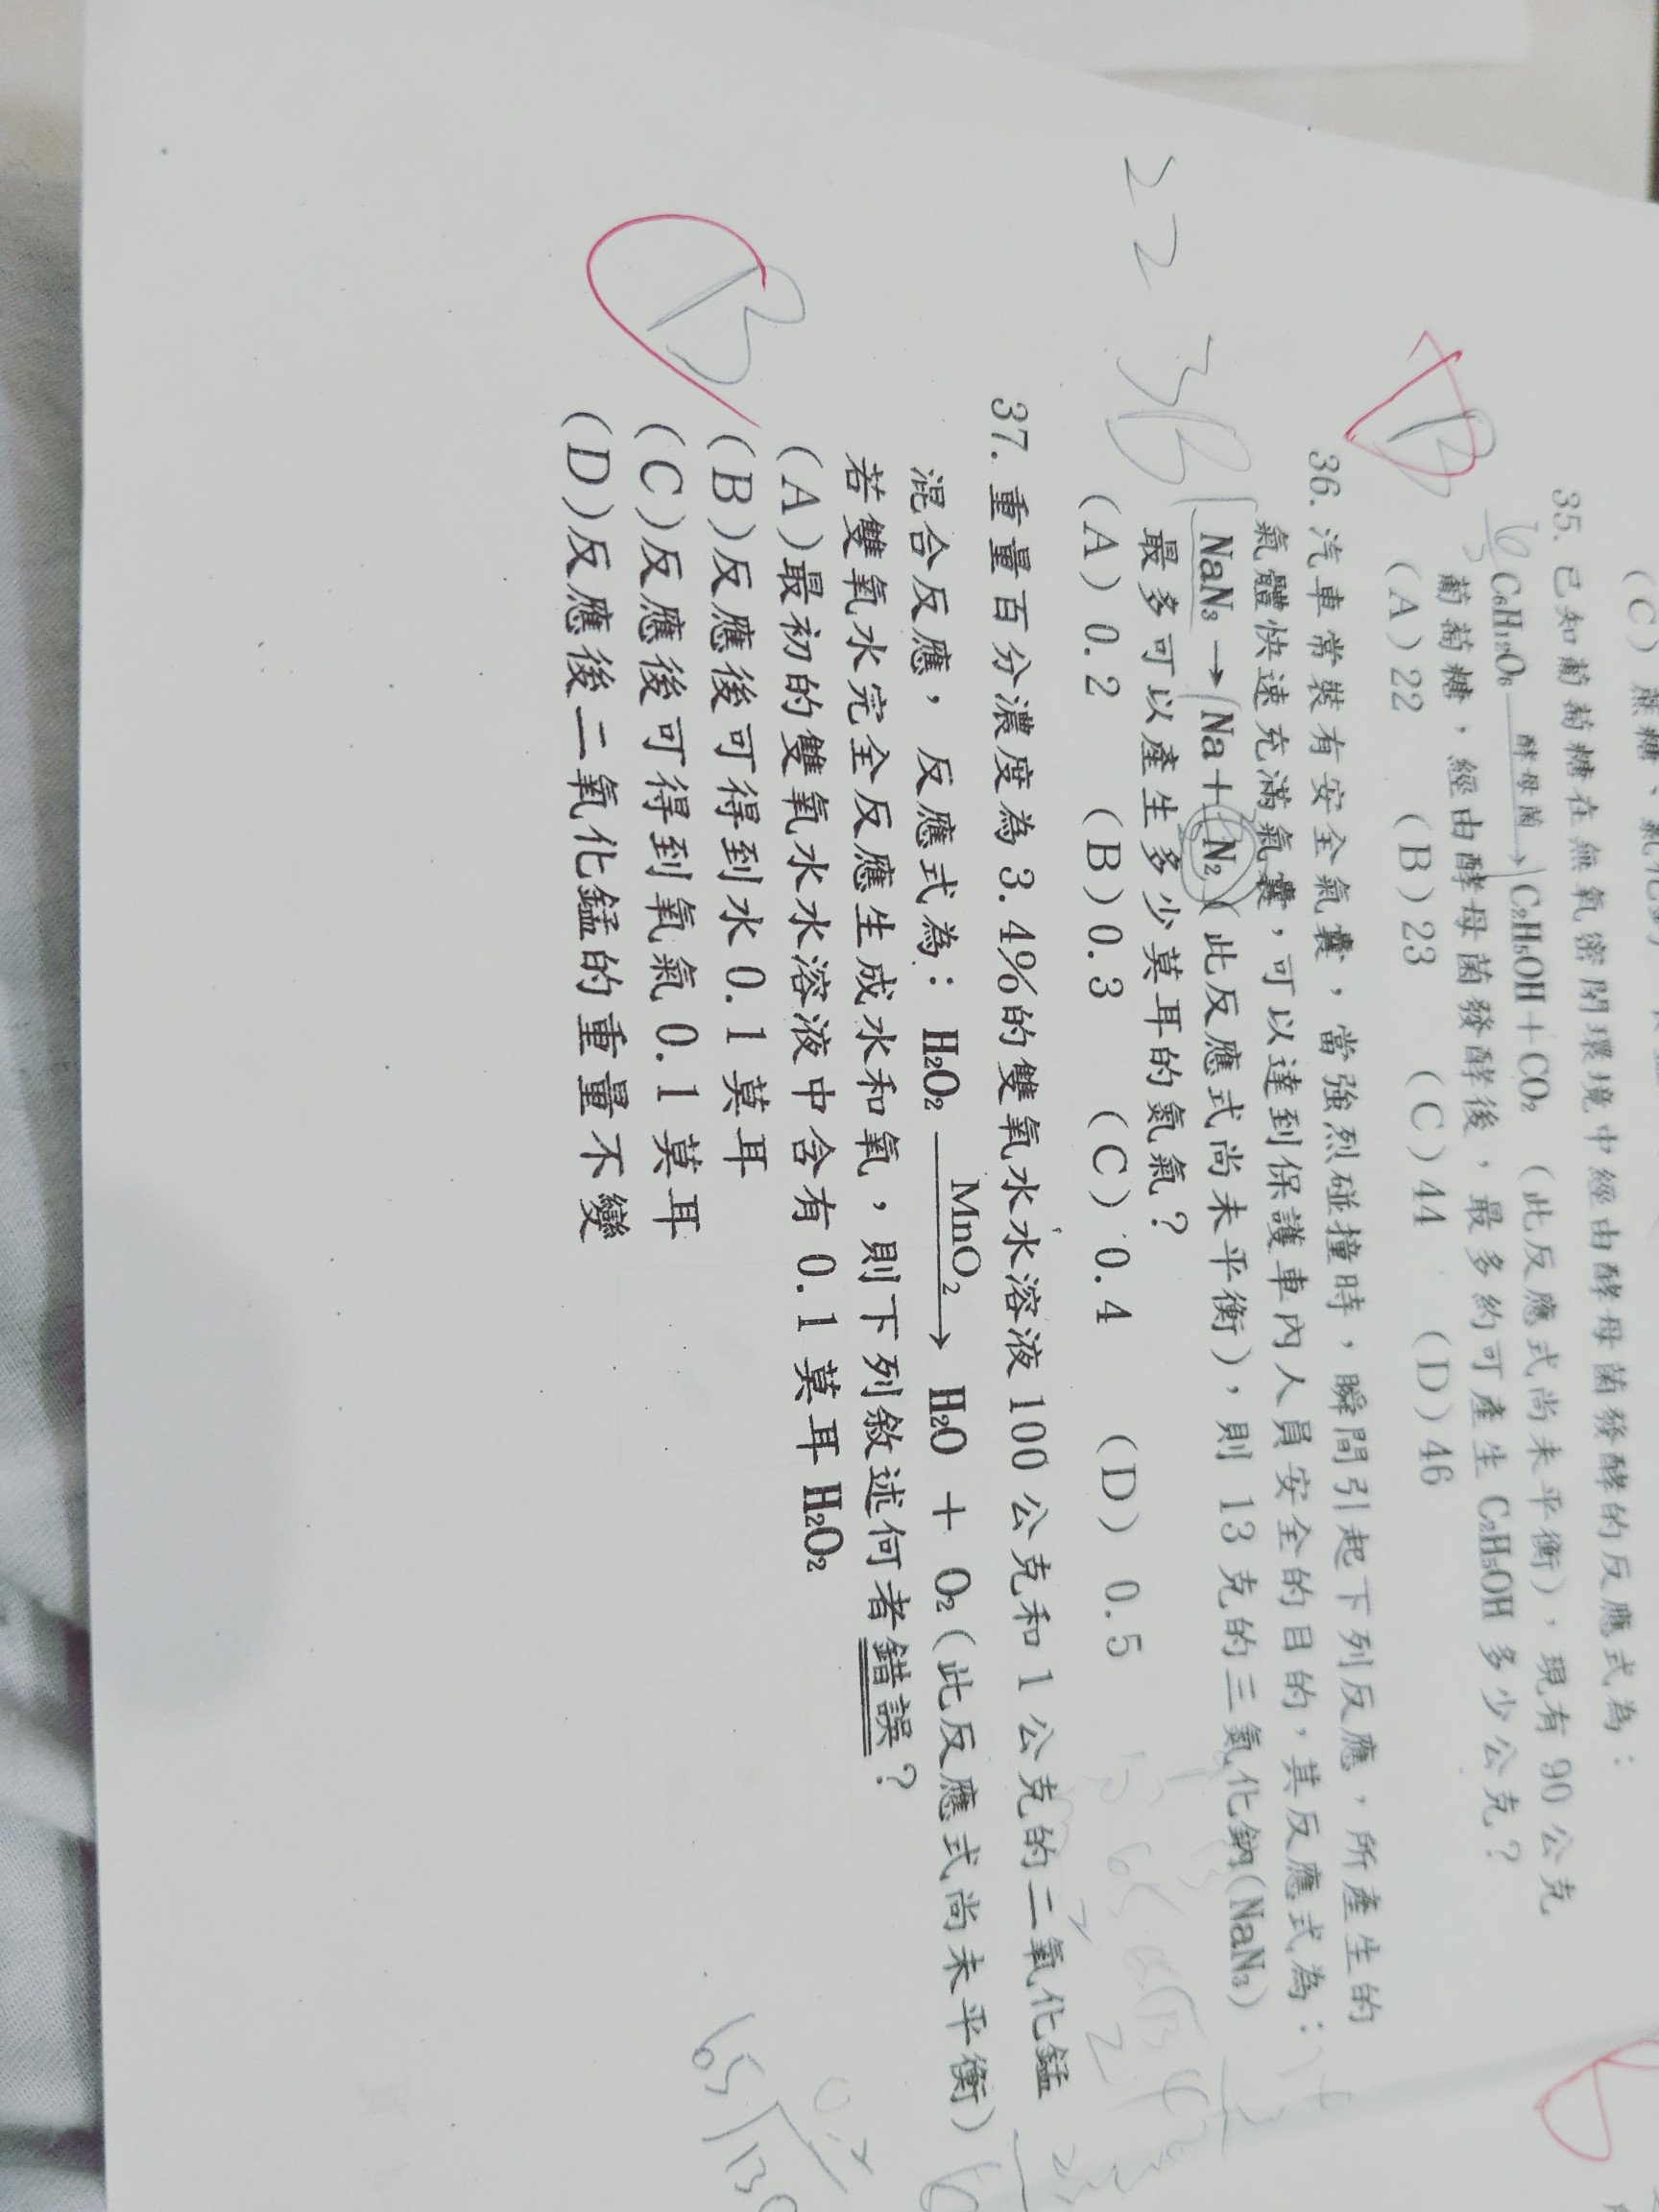 (C) 蔗糖、氯化
35. 已知葡萄糖在無氧密閉環境中經由酵母菌發酵的反應式為：
C₆H₁₂O₆ 酵母菌→ C₂H₅OH＋CO₂ (此反應式尚未平衡)，現有 90 公克
葡萄糖，經由酵母菌發酵後，最多約可產生 C₂H₅OH 多少公克？
(A) 22 (B) 23 (C) 44 (D) 46
B
36. 汽車常裝有安全氣囊，當強烈碰撞時，瞬間引起下列反應，所產生的
氣體快速充滿氣囊，可以達到保護車內人員安全的目的，其反應式為：
NaN₃ → Na＋N₂ (此反應式尚未平衡)，則 13 克的三氮化鈉(NaN₃)
最多可以產生多少莫耳的氮氣？
(A) 0.2 (B) 0.3 (C) 0.4 (D) 0.5
22 3 B
37. 重量百分濃度為 3.4%的雙氧水水溶液 100 公克和 1 公克的二氧化錳
混合反應，反應式為：H₂O₂ MnO₂→ H₂O ＋ O₂ (此反應式尚未平衡)
若雙氧水完全反應生成水和氧，則下列敘述何者錯誤？
(A)最初的雙氧水水溶液中含有 0.1 莫耳 H₂O₂
(B)反應後可得到水 0.1 莫耳
(C)反應後可得到氧氣 0.1 莫耳
(D)反應後二氧化錳的重量不變
B
0.2
65 130